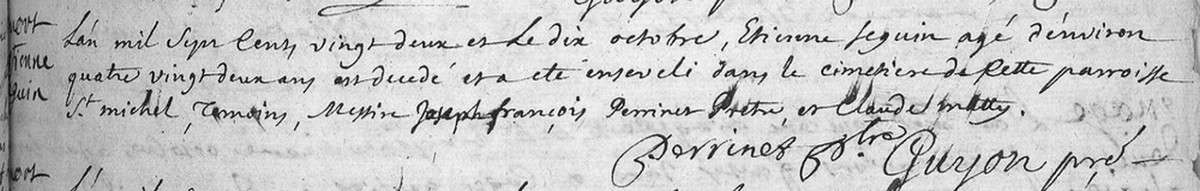 mort
Etienne
Seguin
L'an mil Sept Cents vingt deux et Le dix octobre, Etienne seguin agé d'environ
quatre vingt deux ans est decedé et a eté enseveli dans le cimetiere de Cette parroisse
St michel, Temoins, Messire Joseph françois Perrinet Prétre, et Claude matty.
Perrinet Ptre Guyon pré